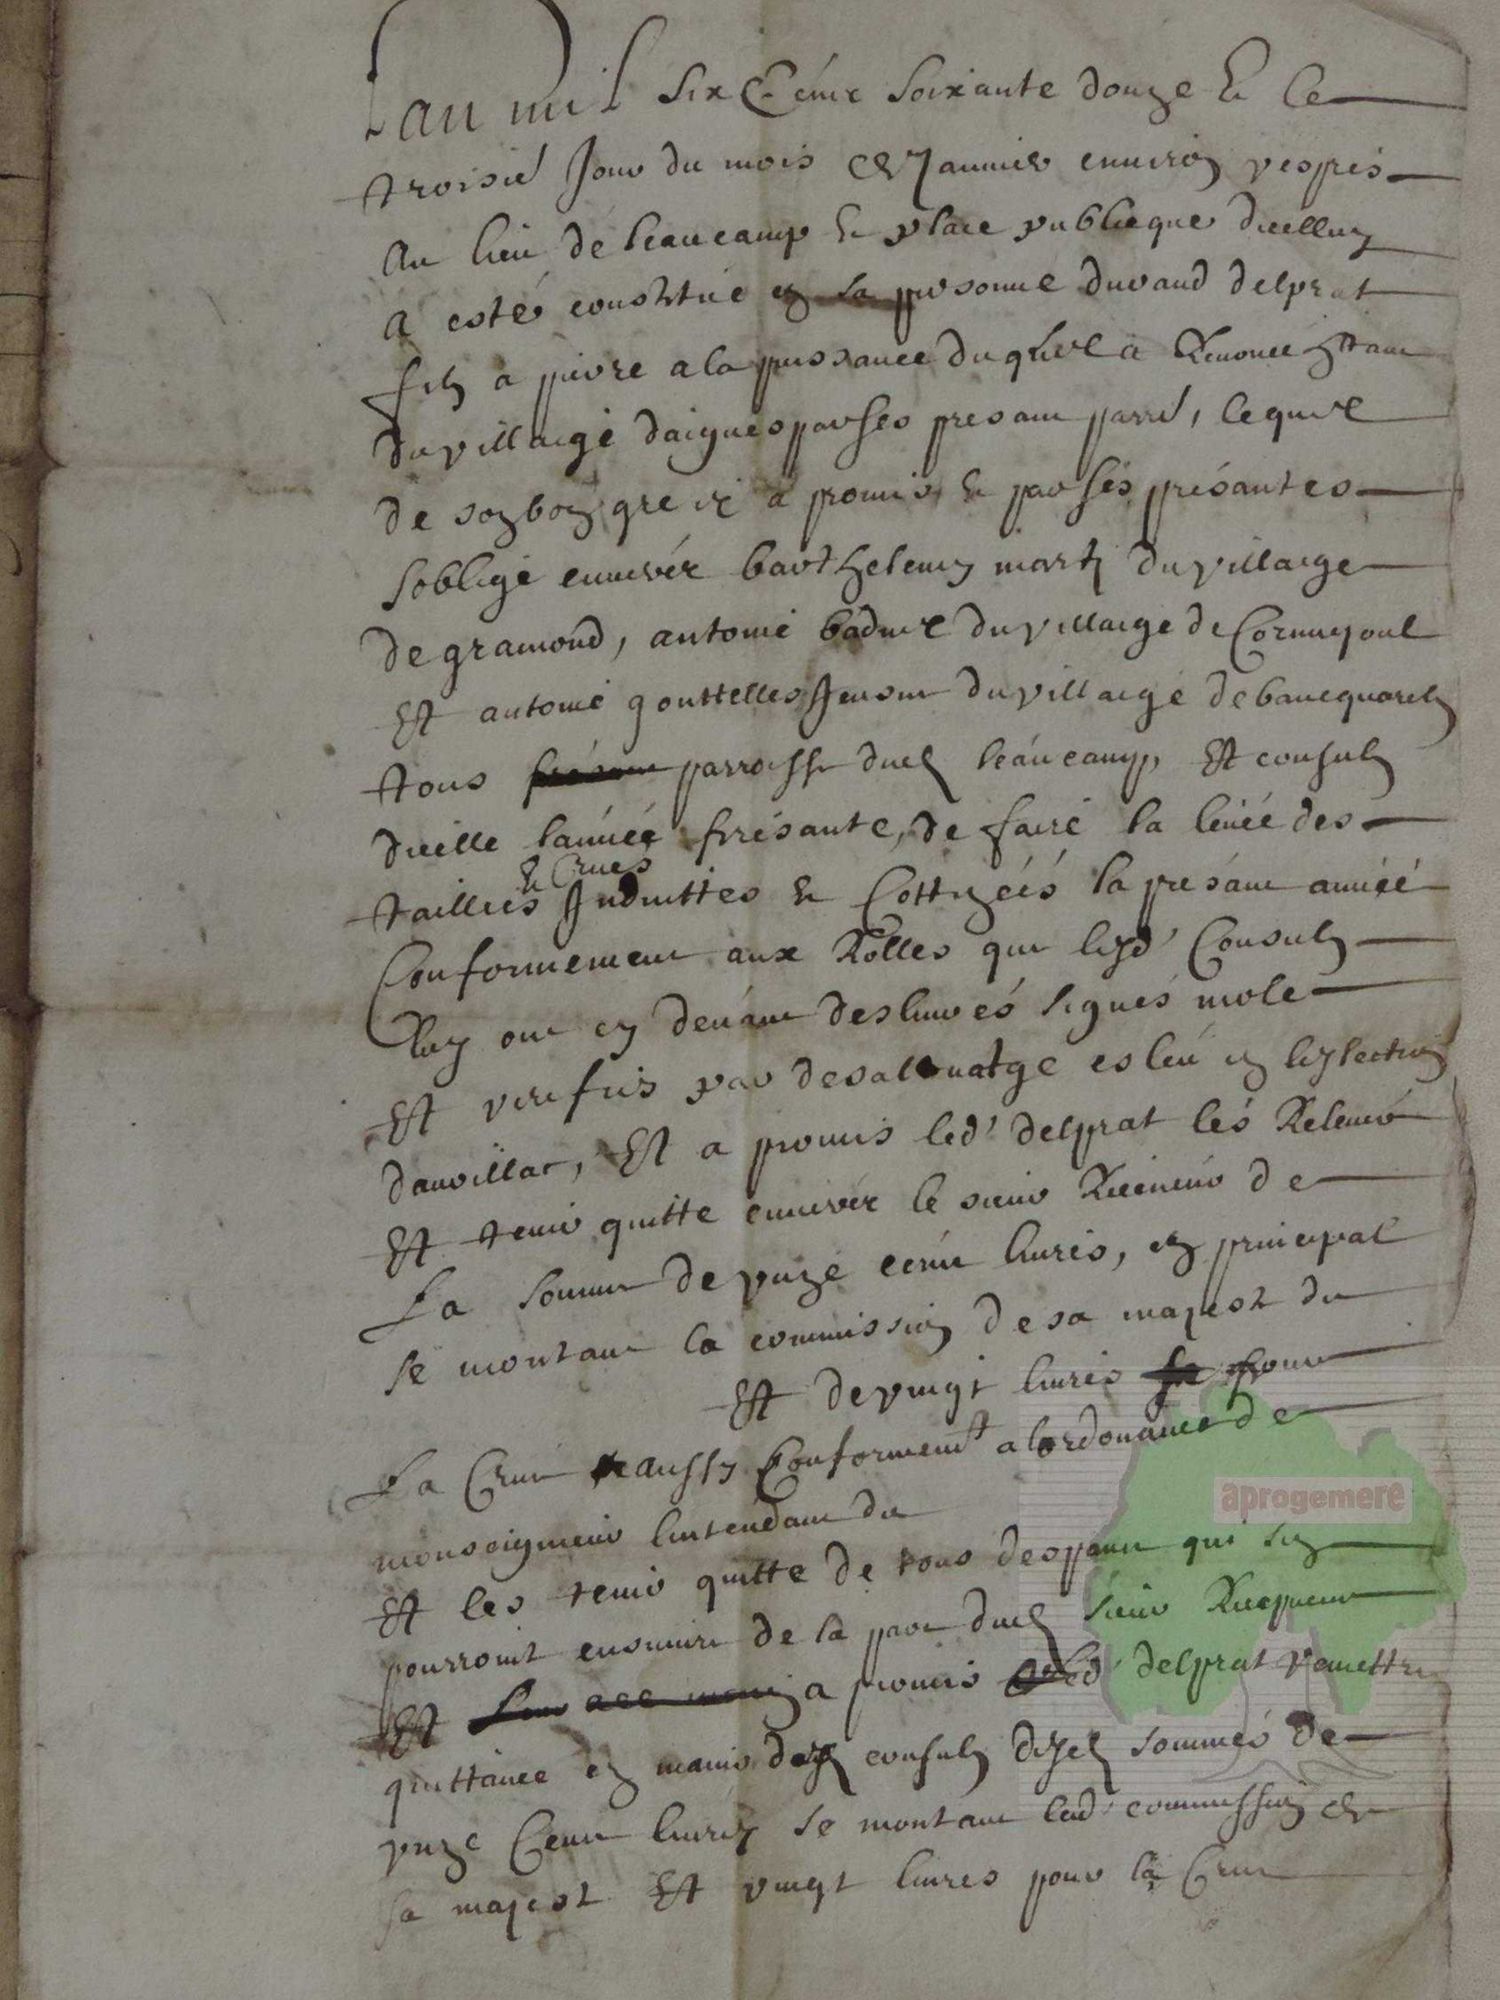 Lan mil six Cens soixante douze & le
troisie Jour du mois de Janvier environ vespres
Au lieu de leaucamp & place publicque dicelluy
a esté constitué en sa personne durand delprat
filz a pierre a la puissance duquel a Renoncé
du villaige daiguesparses presant parrie, lequel
de son bon gre a promis & par ses présantes
soblige envers barthelemy marty du villaige
de gramond, antoine du villaige de Cornuejoul
Et antoine gouttelles Jeusne du villaige de
tous parroisse dud leaucamp, Et consulz
dicelle lannée présante, de faire la levée des
& Crues
tailles Induittes & Cottizées la présant année
Conformement aux Rolles que lesd Consulz
luy ont en devant deslivrés signés mole
Et verifies par desalmatge esleu en leslection
daurillac, Et a promis led delprat les Relever
Et tenir quitte envers le sieur Recepveur de
La somme de unze cens livres, en principal
se montant la commission de sa majest du
Et de vingt livres pour
La Crue aussy Conformemt a lordonance de
monseigneur lintendant du
Et les tenir quitte de tous despans qui sen
pourroint ensuivre de la part dud sieur Recepveur
Et a promis led delprat remettre
quittance en mains desd consulz desd sommes de
unze Cens livres se montant lad commission de
sa majest Et vingt livres pour la Crue
aprogemere